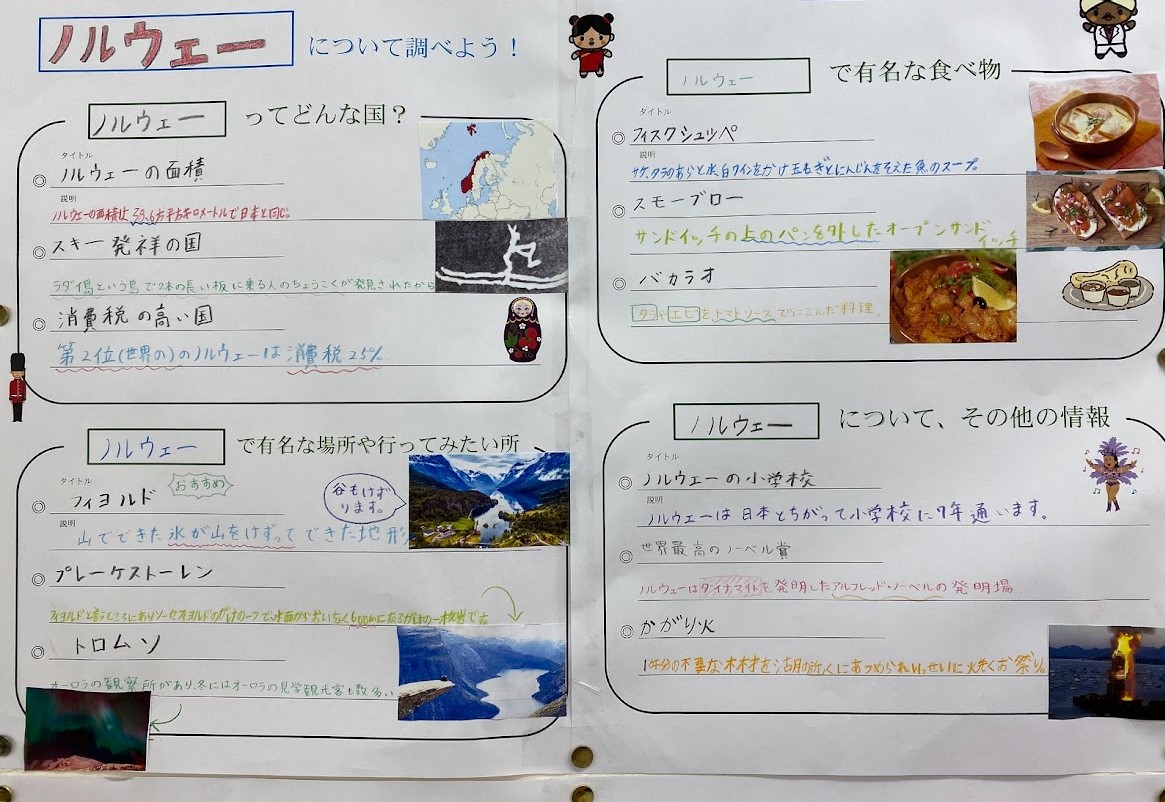 ノルウェー について調べよう！
ノルウェー ってどんな国？
タイトル
◎ ノルウェーの面積
説明
ノルウェーの面積は38.6万平方キロメートルで日本と同じ。
◎ スキー発祥の国
ラダイ島という島で2本の長い板に乗る人のちょうこくが発見されたから
◎ 消費税の高い国
第2位(世界の)のノルウェーは消費税25%
ノルウェー で有名な場所や行ってみたい所
タイトル
◎ フィヨルド
おすすめ
谷もけず
ります。
説明
山でできた氷が山をけずってできた地形
◎ プレーケストーレン
◎ トロムソ
オーロラの観察所があり、冬にはオーロラの見学観光客も数多い
ノルウェー で有名な食べ物
タイトル
◎ フィスクシュッペ
説明
サケ、タラのあらと水、白ワインをかけ玉ねぎとにんじんをそえた魚のスープ。
◎ スモーブロー
サンドイッチの上のパンを外したオープンサンド
イッチ
◎ バカラオ
タラやエビをトマトソースでにこんだ料理。
ノルウェー について、その他の情報
タイトル
◎ ノルウェーの小学校
説明
ノルウェーは日本とちがって小学校に7年通います。
◎ 世界最高のノーベル賞
ノルウェーはダイナマイトを発明したアルフレッド・ノーベルの発明場
◎ かがり火
1年分の不要な木材を